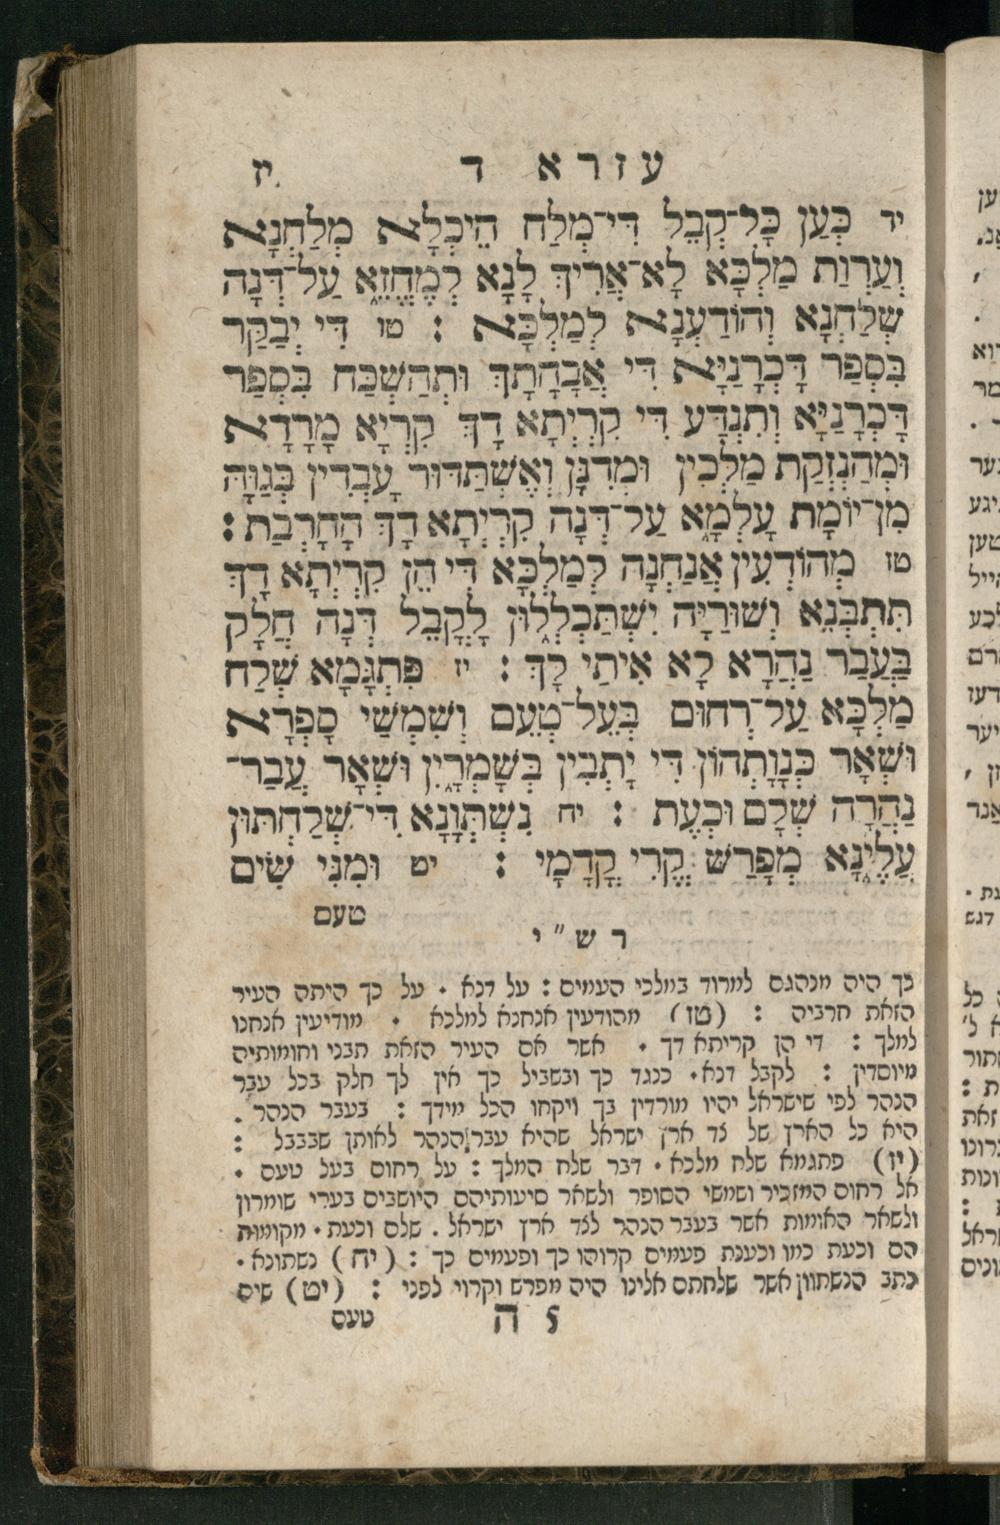 עזרא ד יז
יד כְּעַן כָּל־קְבֵל דִּי־מְלַח הֵיכְלָא מְלַחְנָא
וְעַרְוַת מַלְכָּא לָא־אֲרִיךְ לָנָא לְמֶחֱזֵא עַל־דְּנָה
שְׁלַחְנָא וְהוֹדַעְנָא לְמַלְכָּא : טו דִּי יְבַקַּר
בִּסְפַר דָּכְרָנַיָּא דִּי אֲבָהָתָךְ וּתְהַשְׁכַּח בִּסְפַר
דָּכְרָנַיָּא וְתִנְדַּע דִּי קִרְיְתָא דָךְ קִרְיָא מָרָדָא
וּמְהַנְזְקַת מַלְכִין וּמְדִנָן וְאֶשְׁתַּדּוּר עָבְדִין בְּגַוַּהּ
מִן־יוֹמָת עָלְמָא עַל־דְּנָה קִרְיְתָא דָךְ הָחָרְבַת :
טז מְהוֹדְעִין אֲנַחְנָה לְמַלְכָּא דִּי הֵן קִרְיְתָא דָךְ
תִּתְבְּנֵא וְשׁוּרַיָּה יִשְׁתַּכְלְלוּן לָקֳבֵל דְּנָה חֲלָק
בַּעֲבַר נַהֲרָא לָא אִיתַי לָךְ : יז פִּתְגָּמָא שְׁלַח
מַלְכָּא עַל־רְחוּם בְּעֵל־טְעֵם וְשִׁמְשַׁי סָפְרָא
וּשְׁאָר כְּנָוָתְהוֹן דִּי יָתְבִין בְּשָׁמְרָיִן וּשְׁאָר עֲבַר־
נַהֲרָה שְׁלָם וּכְעֶת : יח נִשְׁתְּוָנָא דִּי־שְׁלַחְתּוּן
עֲלֶינָא מְפָרַשׁ קֱרִי קָדָמָי : יט וּמִנִּי שִׂים
טעם
רש״י
כך היה מנהגם למרוד במלכי העמים : על דנא . על כך היתה העיר
הזאת חרביה : (טז) מהודעין אנחנא למלכא . מודיעין אנחנו
למלך : די הן קריתא דך . אשר אם העיר הזאת תבני וחומותיה
מיוסדין : לקבל דנא . כנגד כך ובשביל כך אין לך חלק בכל עבר
הנהר לפי שישראל יהיו מורדין בך ויקחו הכל מידך : בעבר הנהר .
היא כל הארץ של צד ארץ ישראל שהיא עבר הנהר לאותן שבבבל :
(יז) פתגמא שלח מלכא . דבר שלח המלך : על רחום בעל טעם .
אל רחום המזכיר ושמשי הסופר ולשאר סיעותיהם היושבים בערי שומרון
ולשאר האומות אשר בעבר הנהר לצד ארץ ישראל . שלם וכעת . מקומות
הם וכעת כמו וכענת פעמים קרוהו כך ופעמים כך : (יח) נשתונא .
כתב הנשתוון אשר שלחתם אלינו היה מפרש וקרוי לפני : (יט) שים
ה 5 טעם